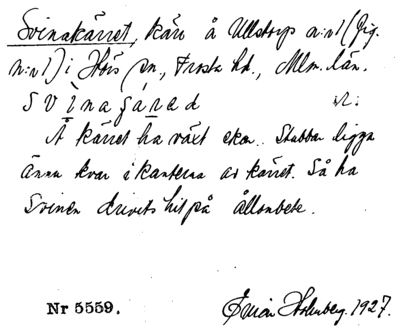 Svinakärret, kärr å Ullstorps n:o 1 (Fig.
n:o 1) i Hörs sn, Frosta hd., Mlm. län.
Å kärret ha växt ekar. Stubbar ligga
ännu kvar i kanterna av kärret. Så ha
svinen drivits hit på ållonbete.
Nr 5559.
Holmberg. 1927.